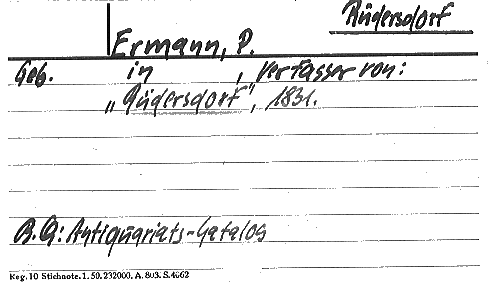 Rüdersdorf
Ermann, P.
Geb. in , Verfasser von:
„Rüdersdorf", 1831.
B.Q: Antiquariats-Catalog
Keg. 10 Stichnote. 1. 50. 232000. A. 803. S. 4662